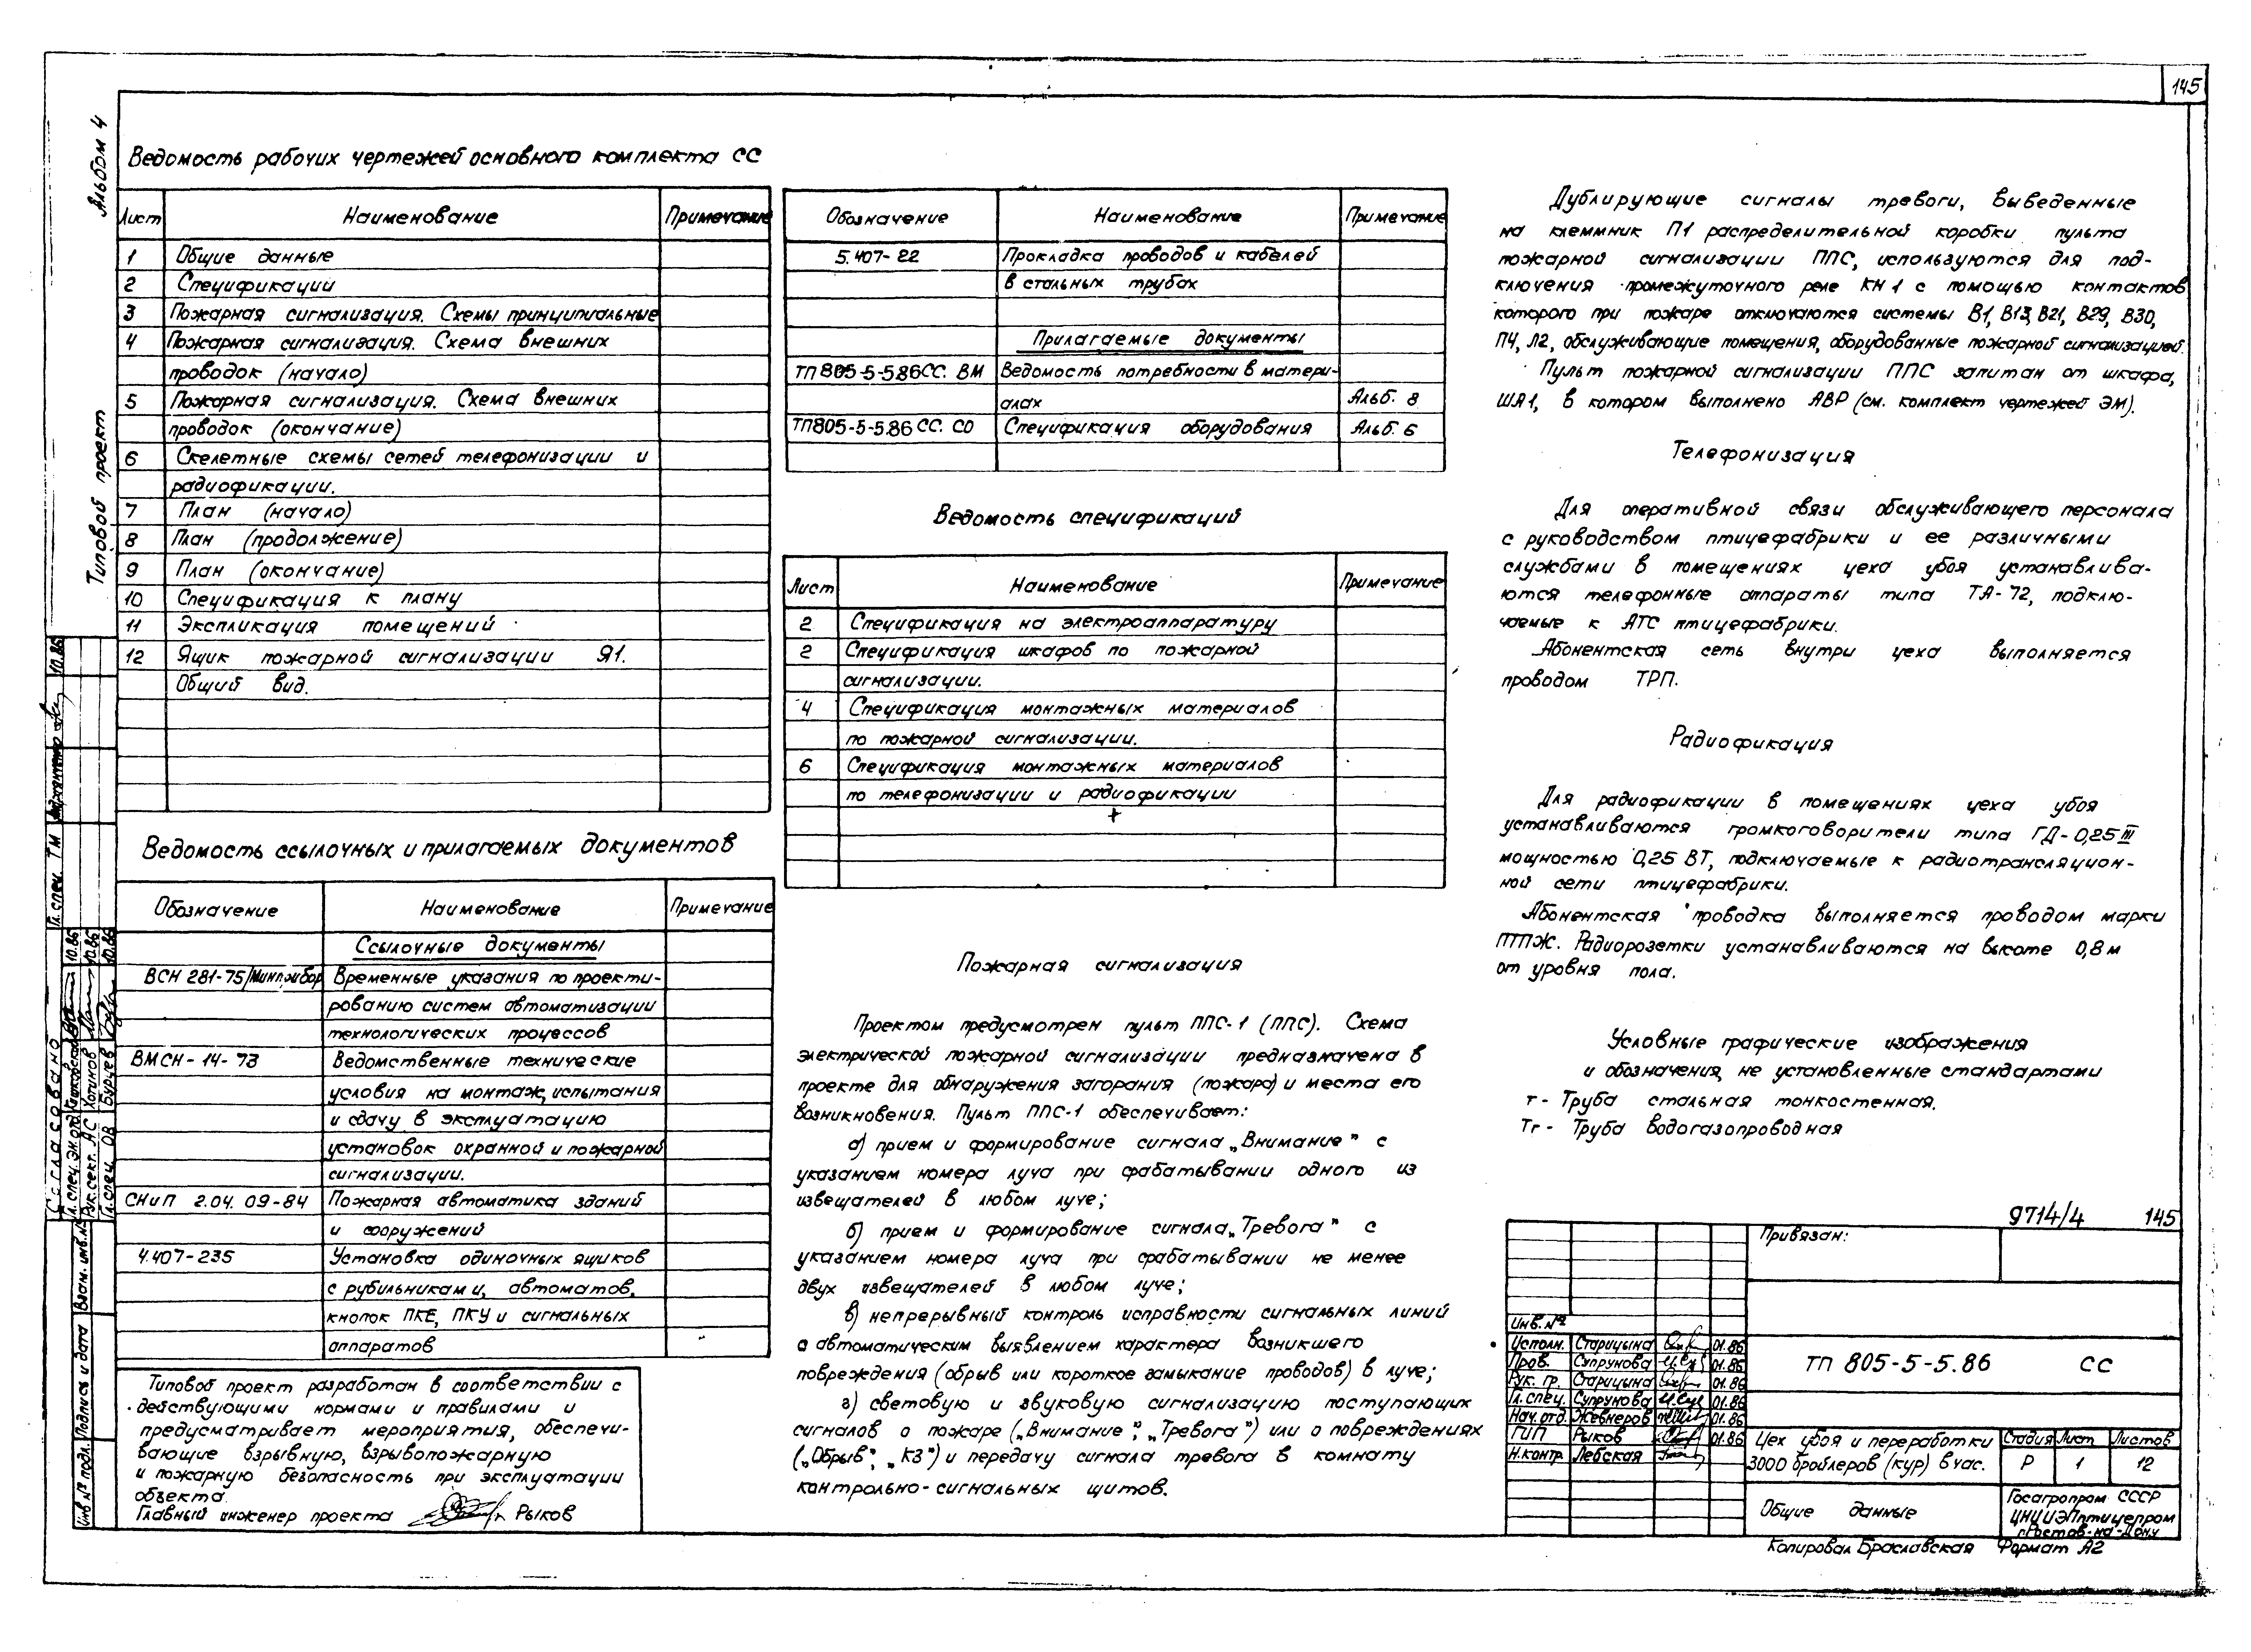 145
Альбом 4
Типовой проект
Ведомость рабочих чертежей основного комплекта СС
Лист Наименование Примечание
1 Общие данные
2 Спецификации
3 Пожарная сигнализация. Схемы принципиальные
4 Пожарная сигнализация. Схема внешних
проводок (начало)
5 Пожарная сигнализация. Схема внешних
проводок (окончание)
6 Скелетные схемы сетей телефонизации и
радиофикации.
7 План (начало)
8 План (продолжение)
9 План (окончание)
10 Спецификация к плану
11 Экспликация помещений
12 Ящик пожарной сигнализации Я1.
Общий вид.
Ведомость ссылочных и прилагаемых документов
Обозначение Наименование Примечание
Ссылочные документы
ВСН 281-75/Минприбор Временные указания по проекти-
рованию систем автоматизации
технологических процессов
ВМСН-14-73 Ведомственные технические
условия на монтаж, испытания
и сдачу в эксплуатацию
установок охранной и пожарной
сигнализации.
СНиП 2.04.09-84 Пожарная автоматика зданий
и сооружений
4.407-235 Установка одиночных ящиков
с рубильниками, автоматов,
кнопок ПКЕ, ПКУ и сигнальных
аппаратов
Типовой проект разработан в соответствии с
действующими нормами и правилами и
предусматривает мероприятия, обеспечи-
вающие взрывную, взрывопожарную
и пожарную безопасность при эксплуатации
объекта.
Главный инженер проекта Рыков
Обозначение Наименование Примечание
5.407-22 Прокладка проводов и кабелей
в стальных трубах
Прилагаемые документы
ТП805-5-5.86СС.ВМ Ведомость потребности в матери-
алах Альб. 8
ТП805-5-5.86 СС.СО Спецификация оборудования Альб. 6
Ведомость спецификаций
Лист Наименование Примечание
2 Спецификация на электроаппаратуру
2 Спецификация шкафов по пожарной
сигнализации.
4 Спецификация монтажных материалов
по пожарной сигнализации.
6 Спецификация монтажных материалов
по телефонизации и радиофикации
Пожарная сигнализация
Проектом предусмотрен пульт ППС-1 (ППС). Схема
электрической пожарной сигнализации предназначена в
проекте для обнаружения загорания (пожара) и места его
возникновения. Пульт ППС-1 обеспечивает:
а) прием и формирование сигнала „Внимание" с
указанием номера луча при срабатывании одного из
извещателей в любом луче;
б) прием и формирование сигнала „Тревога" с
указанием номера луча при срабатывании не менее
двух извещателей в любом луче;
в) непрерывный контроль исправности сигнальных линий
с автоматическим выявлением характера возникшего
повреждения (обрыв или короткое замыкание проводов) в луче;
г) световую и звуковую сигнализацию поступающих
сигналов о пожаре („Внимание", „Тревога") или о повреждениях
(„Обрыв", „КЗ") и передачу сигнала тревога в комнату
контрольно-сигнальных щитов.
Дублирующие сигналы тревоги, выведенные
на клеммник П1 распределительной коробки пульта
пожарной сигнализации ППС, используются для под-
ключения промежуточного реле КН1 с помощью контактов
которого при пожаре отключаются системы В1, В13, В21, В29, В30,
П4, Л2, обслуживающие помещения, оборудованные пожарной сигнализацией.
Пульт пожарной сигнализации ППС запитан от шкафа,
ШЯ1, в котором выполнено АВР (см. комплект чертежей ЭМ).
Телефонизация
Для оперативной связи обслуживающего персонала
с руководством птицефабрики и ее различными
службами в помещениях цеха убоя устанавлива-
ются телефонные аппараты типа ТА-72, подклю-
чаемые к АТС птицефабрики.
Абонентская сеть внутри цеха выполняется
проводом ТРП.
Радиофикация
Для радиофикации в помещениях цеха убоя
устанавливаются громкоговорители типа ГД-0,25 III
мощностью 0,25 ВТ, подключаемые к радиотрансляцион-
ной сети птицефабрики.
Абонентская проводка выполняется проводом марки
ПТПЖ. Радиорозетки устанавливаются на высоте 0,8 м
от уровня пола.
Условные графические изображения
и обозначения, не установленные стандартами
т - Труба стальная тонкостенная.
Тг - Труба водогазопроводная
9714/4 145
Привязан:
Инв. №
Исполн. Старицына 01.86
Пров. Супрунова 01.86
Рук. гр. Старицына 01.86
Гл. спец. Супрунова 01.86
Нач. отд. Жевнеров 01.86
ГИП Рыков 01.86
Н.контр. Лебская
ТП 805-5-5.86 СС
Цех убоя и переработки
3000 бройлеров (кур) в час.
Стадия Лист Листов
Р 1 12
Общие данные
Госагропром СССР
ЦНИИЭПптицепром
г.Ростов-на-Дону
Копировал Браславская Формат А2
Согласовано
Гл. спец. ТМ 10.86
Гл. спец. эн. отд. 10.86
Рук. сект. АС Хотинов 10.86
Гл. спец. ОВ Бурцев 10.86
Взам. инв. №
Подпись и дата
Инв № подл.